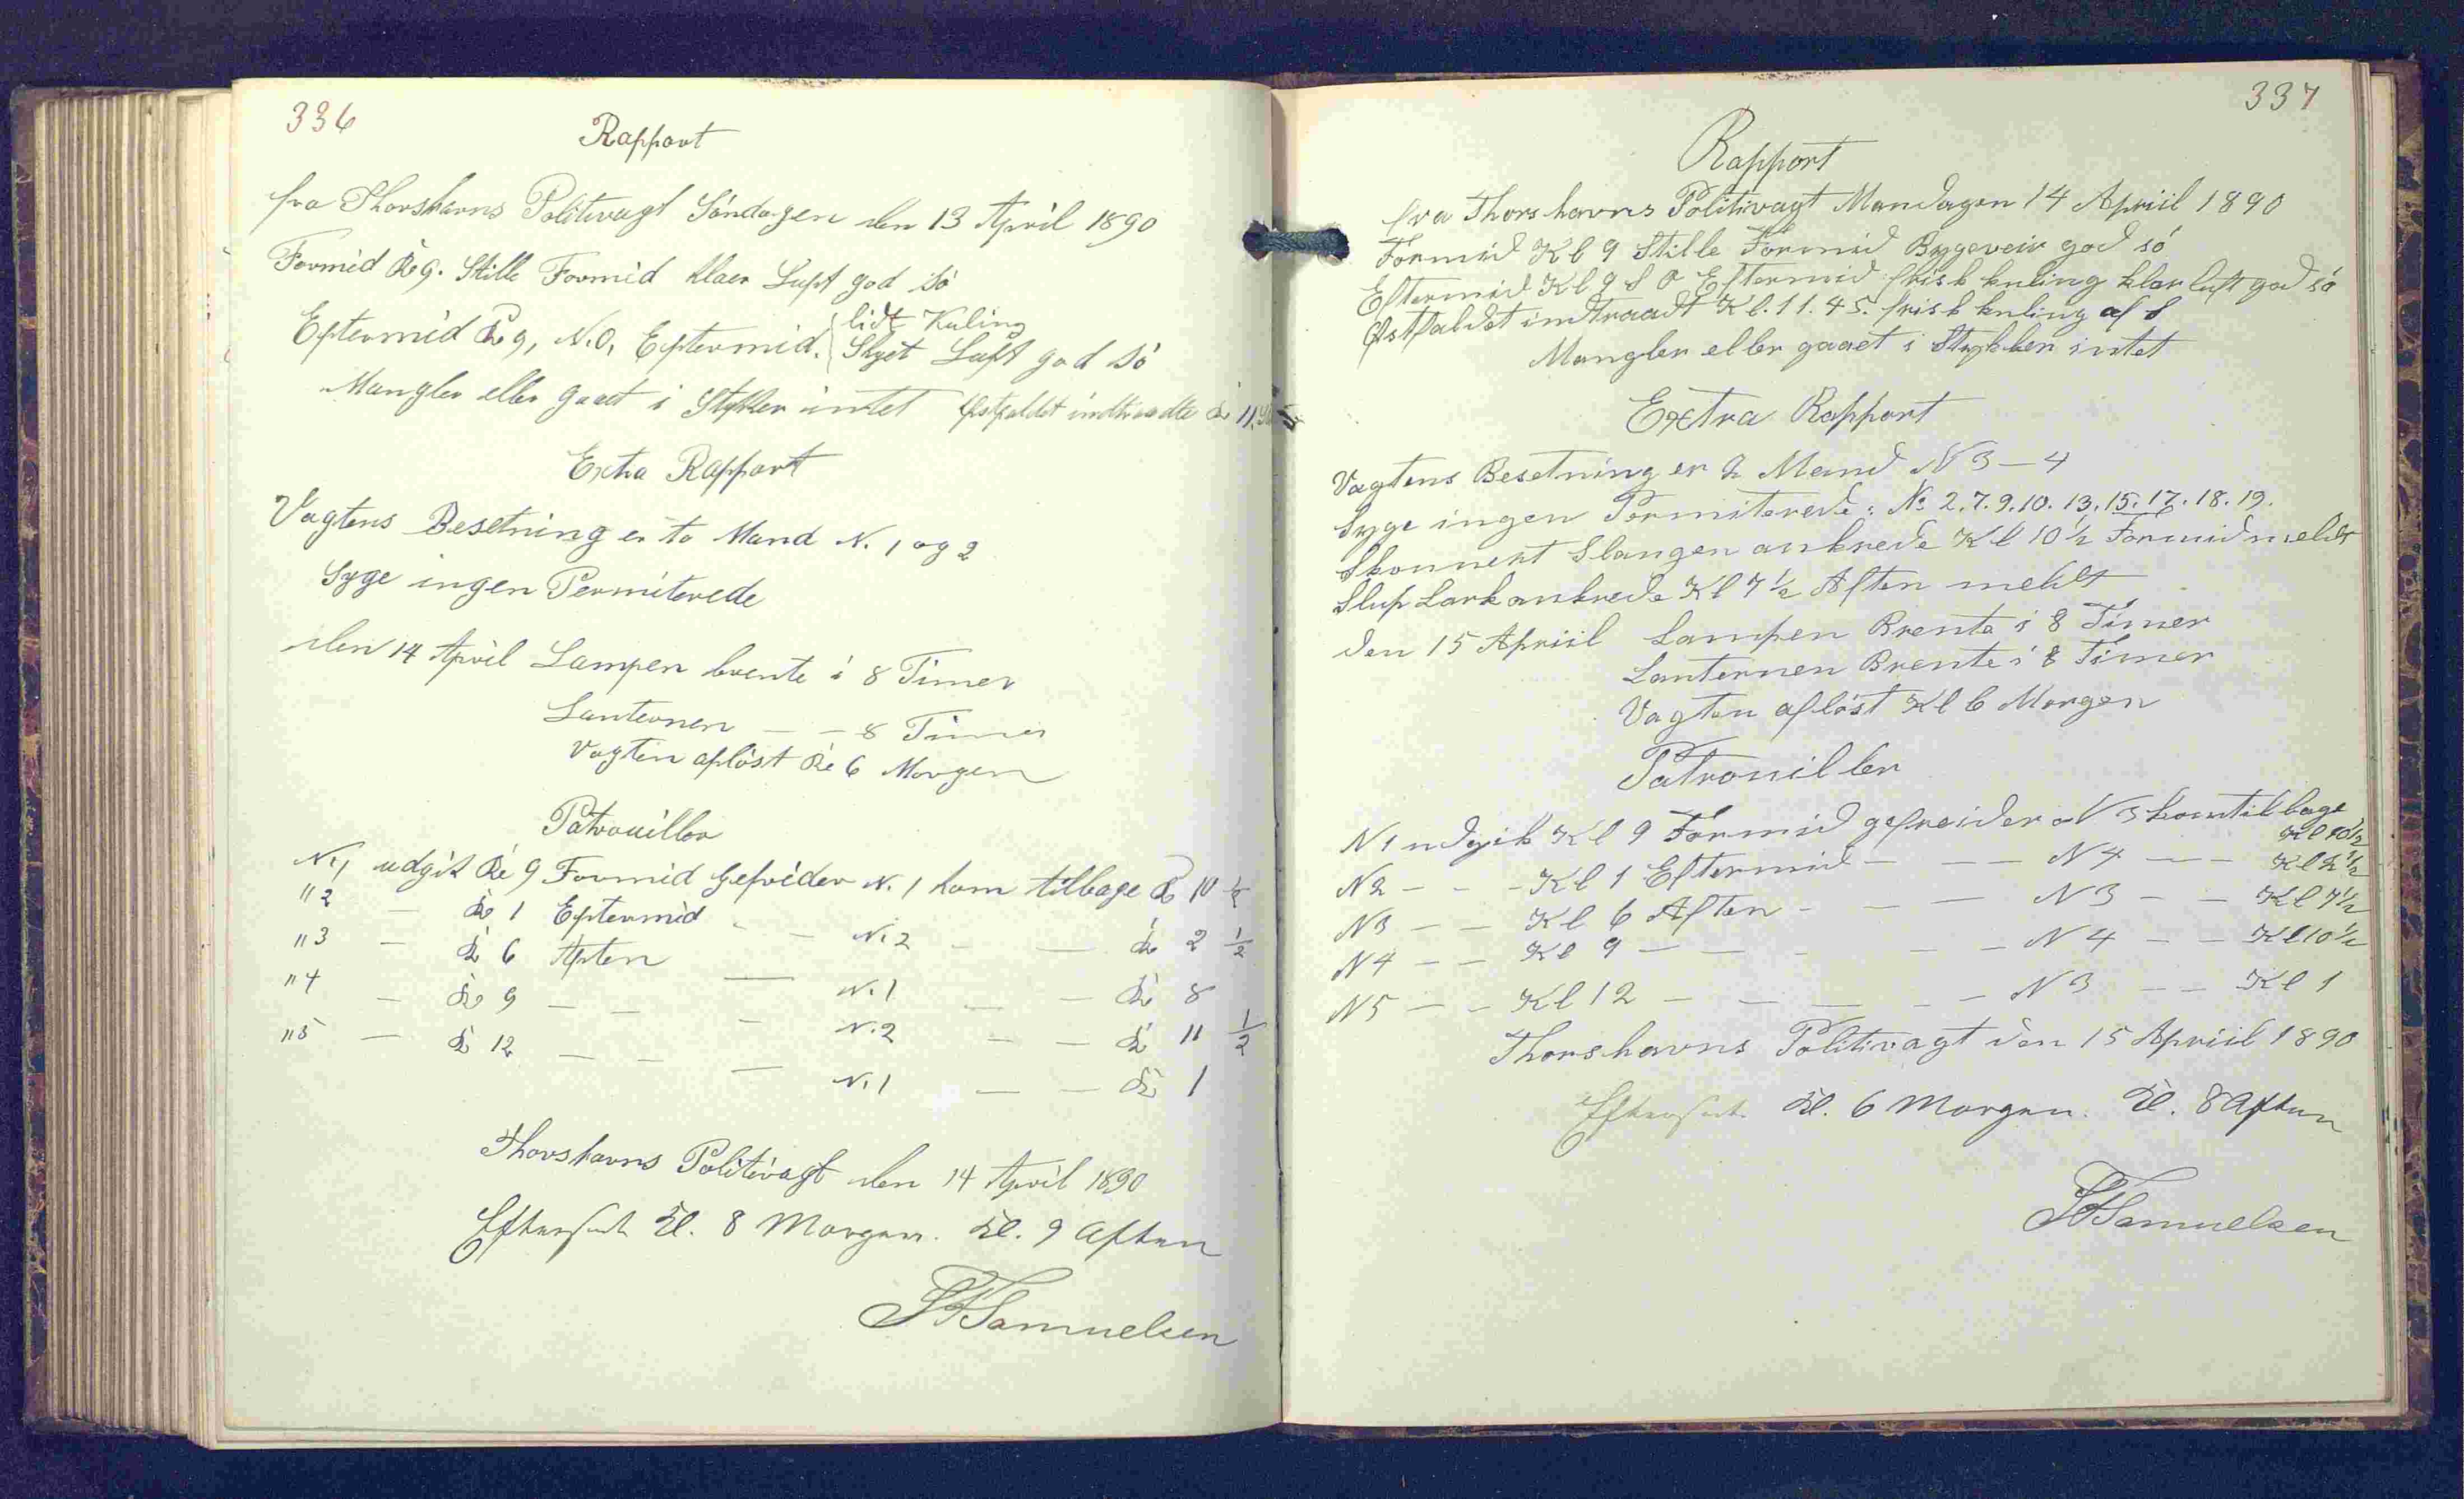 336
Rapport
fra Thorshavns Politivagt Söndagen den 13 April 1890
Formid Kl 9. Stille Formid klaer Luft god sö
lidt Kuling
Eftermid Kl 9, N.O, Eftermid. Skyet Luft god sö
Mangler eller gaaet i Stykker intet Østfaldet indtraadte Kl 11
Extra Rapport
Vagtens Besetning er to Mand N. 1 og 2
Syge ingen Permiterede
den 14 April Lampen brente i 8 Timer
Lanternen — — 8 Timer
Vagten aflöst Kl 6 Morgen
Patrouiller
N. 1 udgik Kl 9 Formid Gefreider N. 1 kom tilbage Kl 10 ½
" 2 — Kl 1 Eftermid - - N. 2 — — Kl 2 ½
" 3 — Kl 6 Aften — N. 1 — — Kl 8
" 4 — Kl 9 — — — N. 2 — — Kl 11 ½
" 5 — Kl 12 — — — N. 1 — — Kl 1
Thorshavns Politivagt den 14 April 1890
Efterseet Kl. 8 Morgen. Kl. 9 Aften
Samuelsen
337
Rapport
fra Thorshavns Politivagt Mandagen 14 Apriil 1890
Formid Kl 9 Stille Formid Bygeveir god sö
Eftermid Kl 9 S O Eftermid frisk kuling klar luft god sö
Østfaldet indtraadt Kl. 11.45. frisk kuling af S
Mangler eller gaaet i Stykker intet
Extra Rapport
Vagtens Besetning er 2 Mand N 3 — 4
Syge ingen Permiterede: No 2. 7. 9. 10. 13. 15. 17. 18. 19.
Skonnert Slangen ankrede Kl 10 ½ Formid meldt
Slup Lark ankrede Kl 7 ½ Aften meldt
Den 15 Apriil Lampen Brente i 8 Timer
Lanternen Brente i 8 Timer
Vagten aflöst Kl 6 Morgen
Patrouiller
N 1 udgik Kl 9 Formid gefreider N 3 kom tilbage
Kl 10½
N 2 - - - Kl 1 Eftermid — — — N 4 — — Kl 2½
N 3 — — Kl 6 Aften - — — N 3 — — Kl 7½
N 4 — — Kl 9 — — - — — N 4 — — Kl 10½
N 5 — — Kl 12 — — — — — N 3 — — Kl 1
Thorshavns Politivagt den 15 Apriil 1890
Efterseet Kl. 6 Morgen. Kl. 8 Aften
Samuelsen